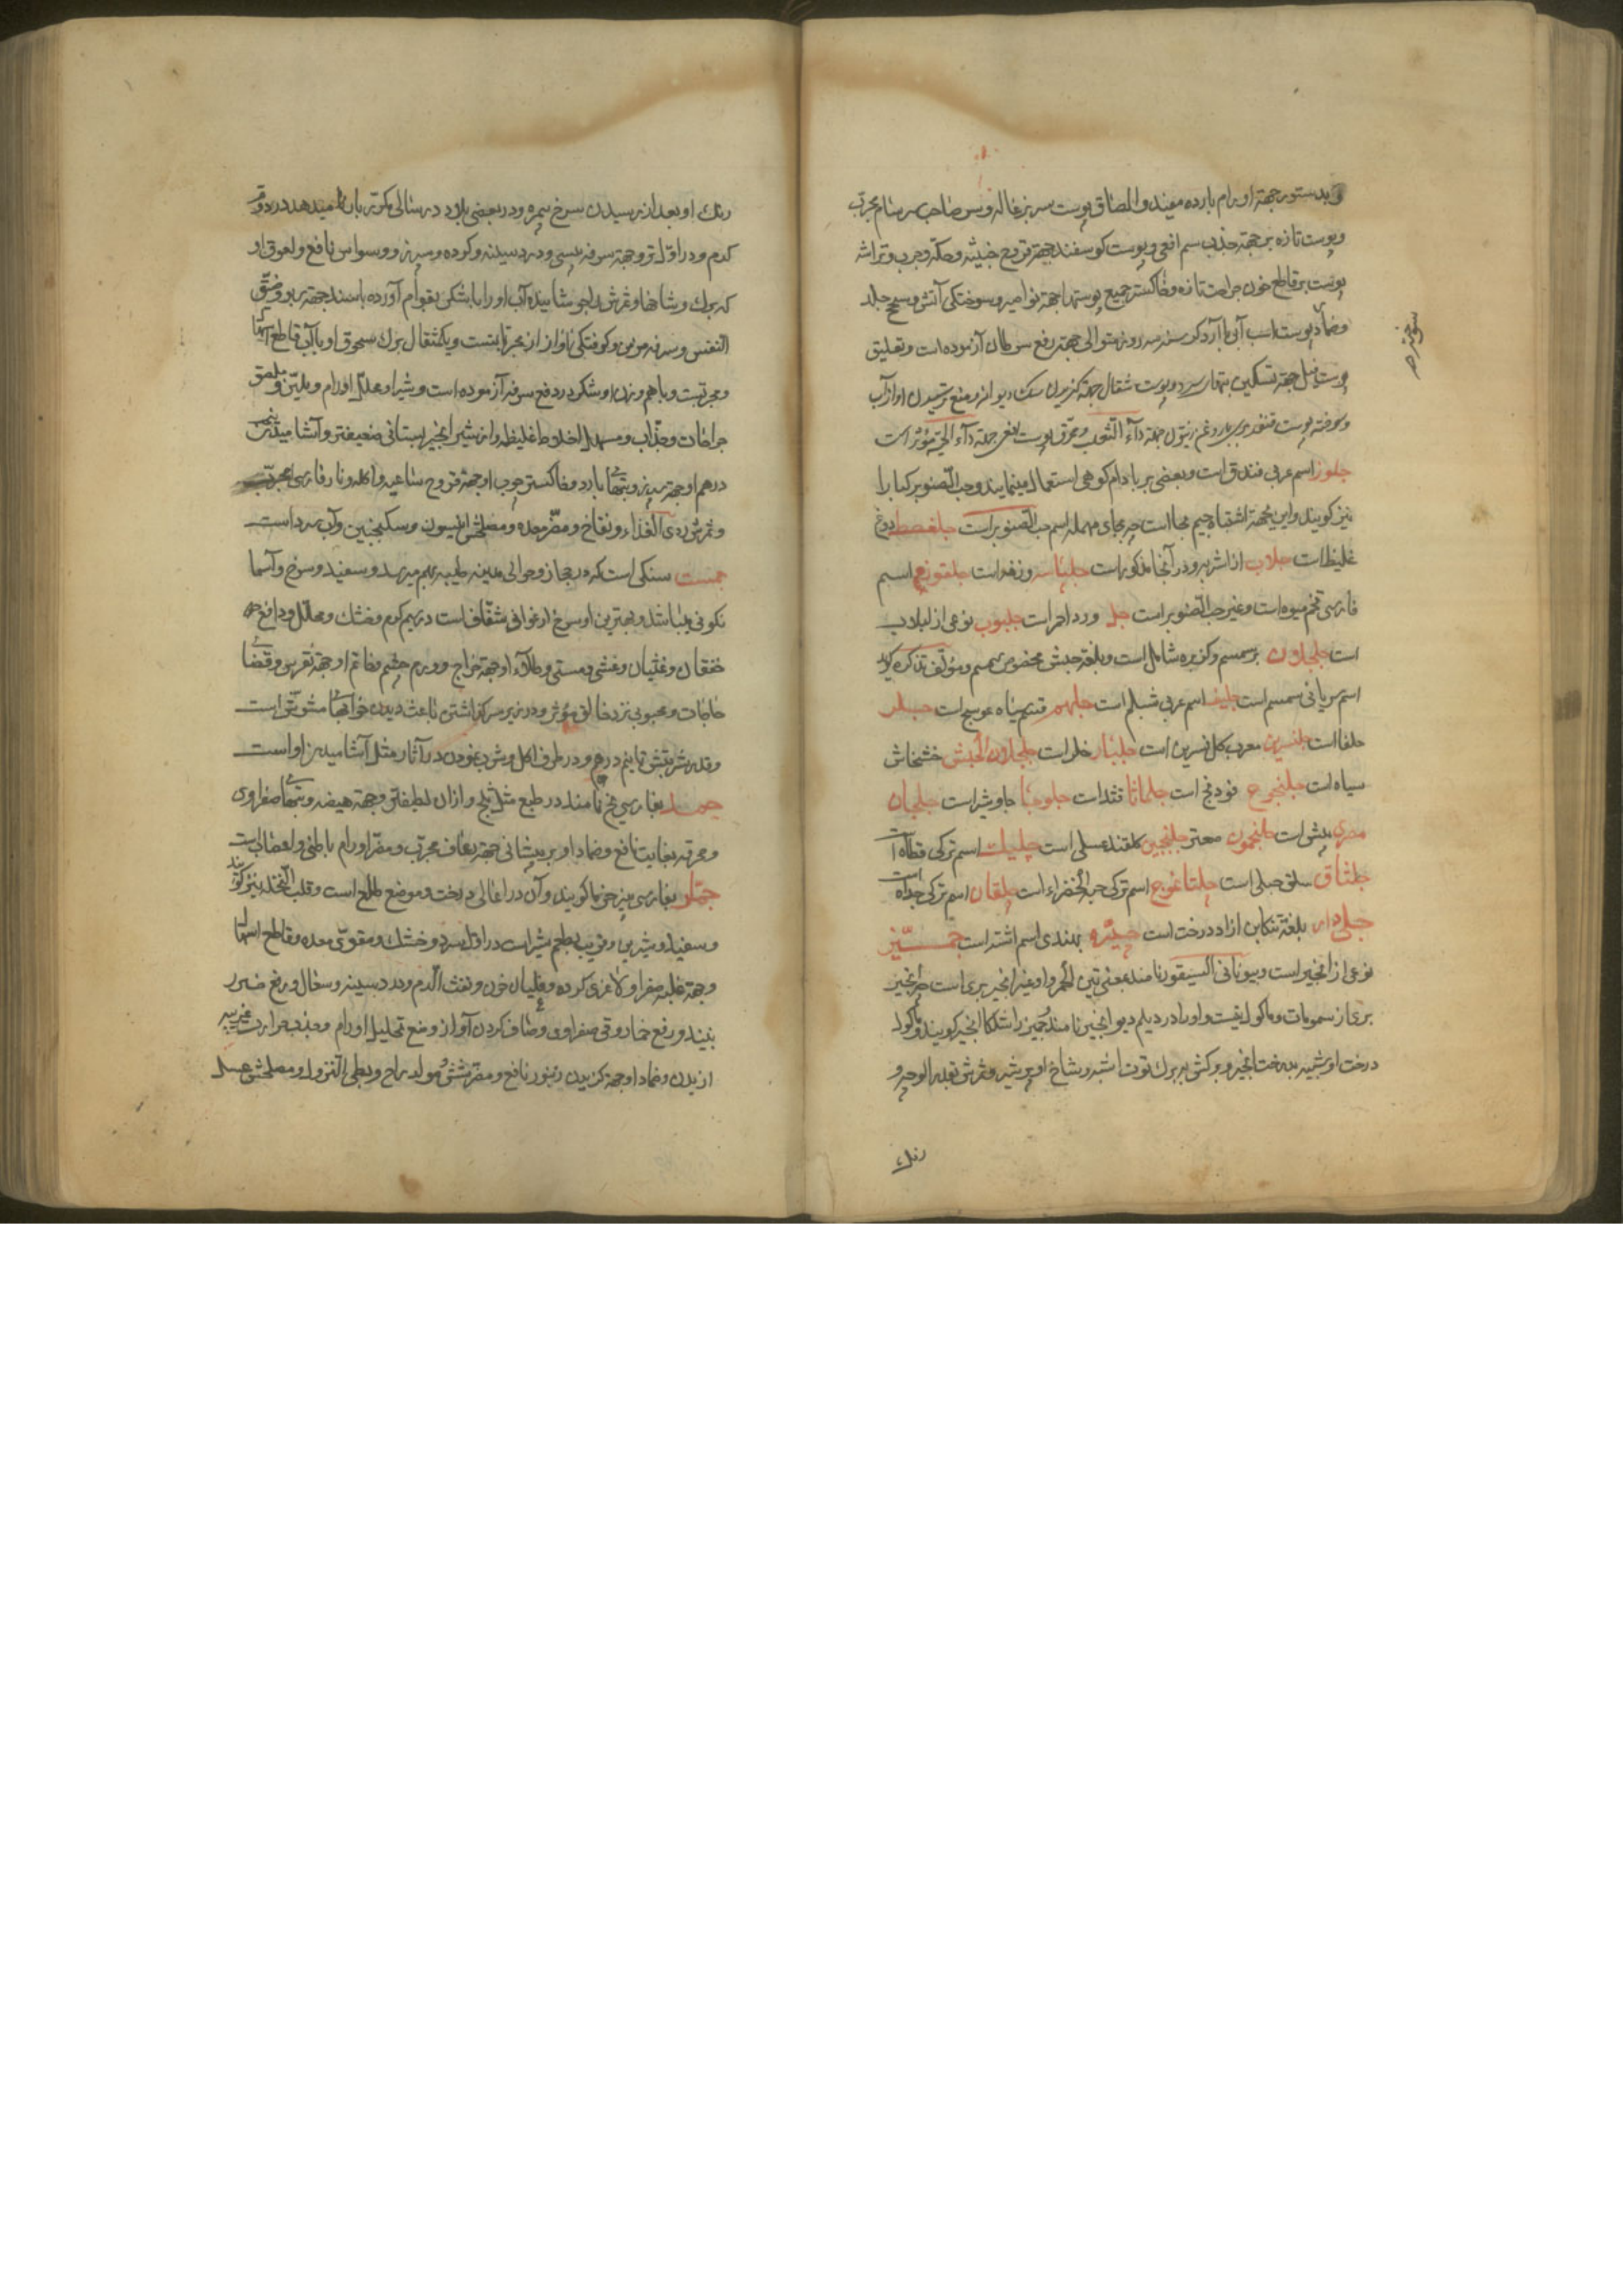 بدستور جهة اورام بارده مفید و الصاق پوست سر بزغاله و بس صاحب سرسام مجرّب
و پوست تازه بز جهة جذب سم افعی و پوست کوسفند جهة قروح خبیثه و حکّه و جرب و تراشه
پوست بز قاطع خون جراحت تازه و خاکستر جمیع پوستها جهة نواصیر و سوختکی آتش و سحج جلد
و ضماد پوست اسب آبی با آرد کرسنه سه روز متوالی جهة رفع سرطان آزموده است و تعلیق
پوست فیل جهة تسکین تبهای سرد و پوست شغال جهة کزیدن سک دیوانه و منع ترسیدن او از آب
و سوخته پوست قنفذ بری با روغن زیتون جهة داء الثعلب و محرق پوست افعی جهة داء الحیّة مؤثر است
جلوز اسم عربی فندق است و بعضی بر بادام کوهی استعمال مینمایند و حب الصنوبر کبار را
نیز کویند و این بجهة اشتباه جیم بحا است چه بحای مهمله اسم حب الصنوبر است جلغصط دوغ
غلیظ است جلاب از اشربه و در آنجا مذکور است جلبناسه وزغه است جلغوزه اسم
فارسی تخم میوه است و غیر حب الصنوبر است جل ورد احمر است جلبوب نوعی از لبلاب
است جلجلان بر سمسم و کزبره شامل است و بلغة حبش مخصوص سمسم و مؤلف تذکره کوید
اسم سریانی سمسم است جلیف اسم عربی شیلم است جلهم قسم سیاه عوسج است جبلر
حلفا است جلنسرین معرب کل نسرین است جلبنار خلر است جلجلان الحبش خشخاش
سیاه است جلنجوع فودنج است جلماثا قثد است جلوحیا جاوشیر است جلجان
مصری بیش است جلنجون صعتر جلنجبین کلقند عسلی است چلپات اسم ترکی قطاة است
جلتاق سلق جبلی است چلتاغوج اسم ترکی حبة الخضراء است چلقان اسم ترکی حداة است
جلدار بلغة تنکابن ازاد درخت است چهتره بهندی اسم اشنه است جمّیز
نوعی از انجیر است و بیونانی السیقور نامند بمعنی تین الحمر و او غیر انجیر بری است چه انجیر
بری از سمومات و ماکول نیست و او را در دیلم دیو انجیر نامند و جمیز را شلکا انجیر کویند و ماکول
درخت او شبیه بدرخت انجیر و برکش به برک توت اشبه و شاخ او پر شیر و ثمرش بقدر الوچه و
رنک
رنک او بعد از رسیدن سرخ تیره و در بعضی بلاد در سالی مکرر بار میدهد در دوم
کرم و در اول تر و جهة سرفه یبسی و درد سینه و کرده و سپرز و وسواس نافع و لعوق او
که برک و شاخها و ثمرش را جوشانیده آب او را با شکر بقوام آورده باشند جهة ربو و ضیق
النفس و سرفه مزمن و کرفتکی آواز از مجرباتست و یکمثقال برک مسحوق او با آب قاطع اسهال
و مجربست و با هم وزن او شکر در دفع سرفه آزموده است و شیر او محلل اورام و ملیّن و ملصق
جراحات و جذّاب و مسهل اخلاط غلیظه و از شیر انجیر بستانی ضعیفتر و آشامیدن نیم
درهم او جهة سپرز و تبهای بارد و خاکستر چوب او جهة قروح ساعیه و اکله و نار فارسی مجرّب
و ثمرش ردی الغذاء و نفاخ و مضر معده و مصلحش انیسون و سکنجبین و آب سرد است
جمست سنکی است که در حجاز و حوالی مدینه طیبه بهم میرسد و سفید و سرخ و آسما
نکونی میباشد و بهترین او سرخ ارغوانی شفاف است در سیم کرم و خشک و محلل و دافع
خفقان و غثیان و غشی و مستی و طلاء او جهة خراج و ورم چشم و خاتم او جهة نقرس و قضای
حاجات و محبوبی نزد خالق مؤثر و در زیر سر کذاشتن باعث دیدن خوابهای مشوش است
و قدر شربتش تا نیم درهم و در ظرف او اکل و شرب نمودن در آثار مثل آشامیدن او است
جمد بفارسی یخ نامند در طبع مثل ثلج و از آن لطیفتر و جهة هیضه و تبهای صفراوی
و محرقه بغایت نافع و ضماد او بر پیشانی جهة رعاف مجرّب و مضر اورام باطنی و اعضای است
جمّار بفارسی پنیر خرما کویند و آن در اعالی درخت و موضع طلع است و قلب النخلة نیز کویند
و سفید و شیرین و قریب بطعم شیر است در اول سرد و خشک و مقوی معده و قاطع اسهال
و جهة غلبه صفرا و لاغری کرده و غلیان خون و نفث الدم و درد سینه و سعال و رفع ضرر
نبیذ و رفع خمار و قی صفراوی و صاف کردن آواز و منع تحلیل اورام و جذب حرارت غریبه
از بدن و ضماد او جهة کزیدن زنبور نافع و مضر شش و مولد ریاح و بطی النزول و مصلحش عسل